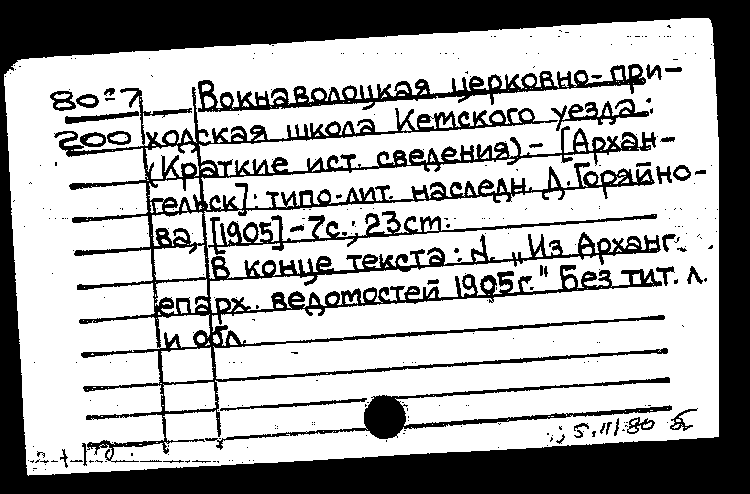 80-7 Вокнаволоцкая церковно-при-
200 ходская школа Кемского уезда:
(Краткие ист. сведения).- [Архан-
гельск]: типо-лит. наследн. Д. Горяйно-
ва, [1905].-7с.; 23cm.
В конце текста: „Из Арханг.
епарх. ведомостей 1905г." Без тит. л.
и обл.
5.III.80